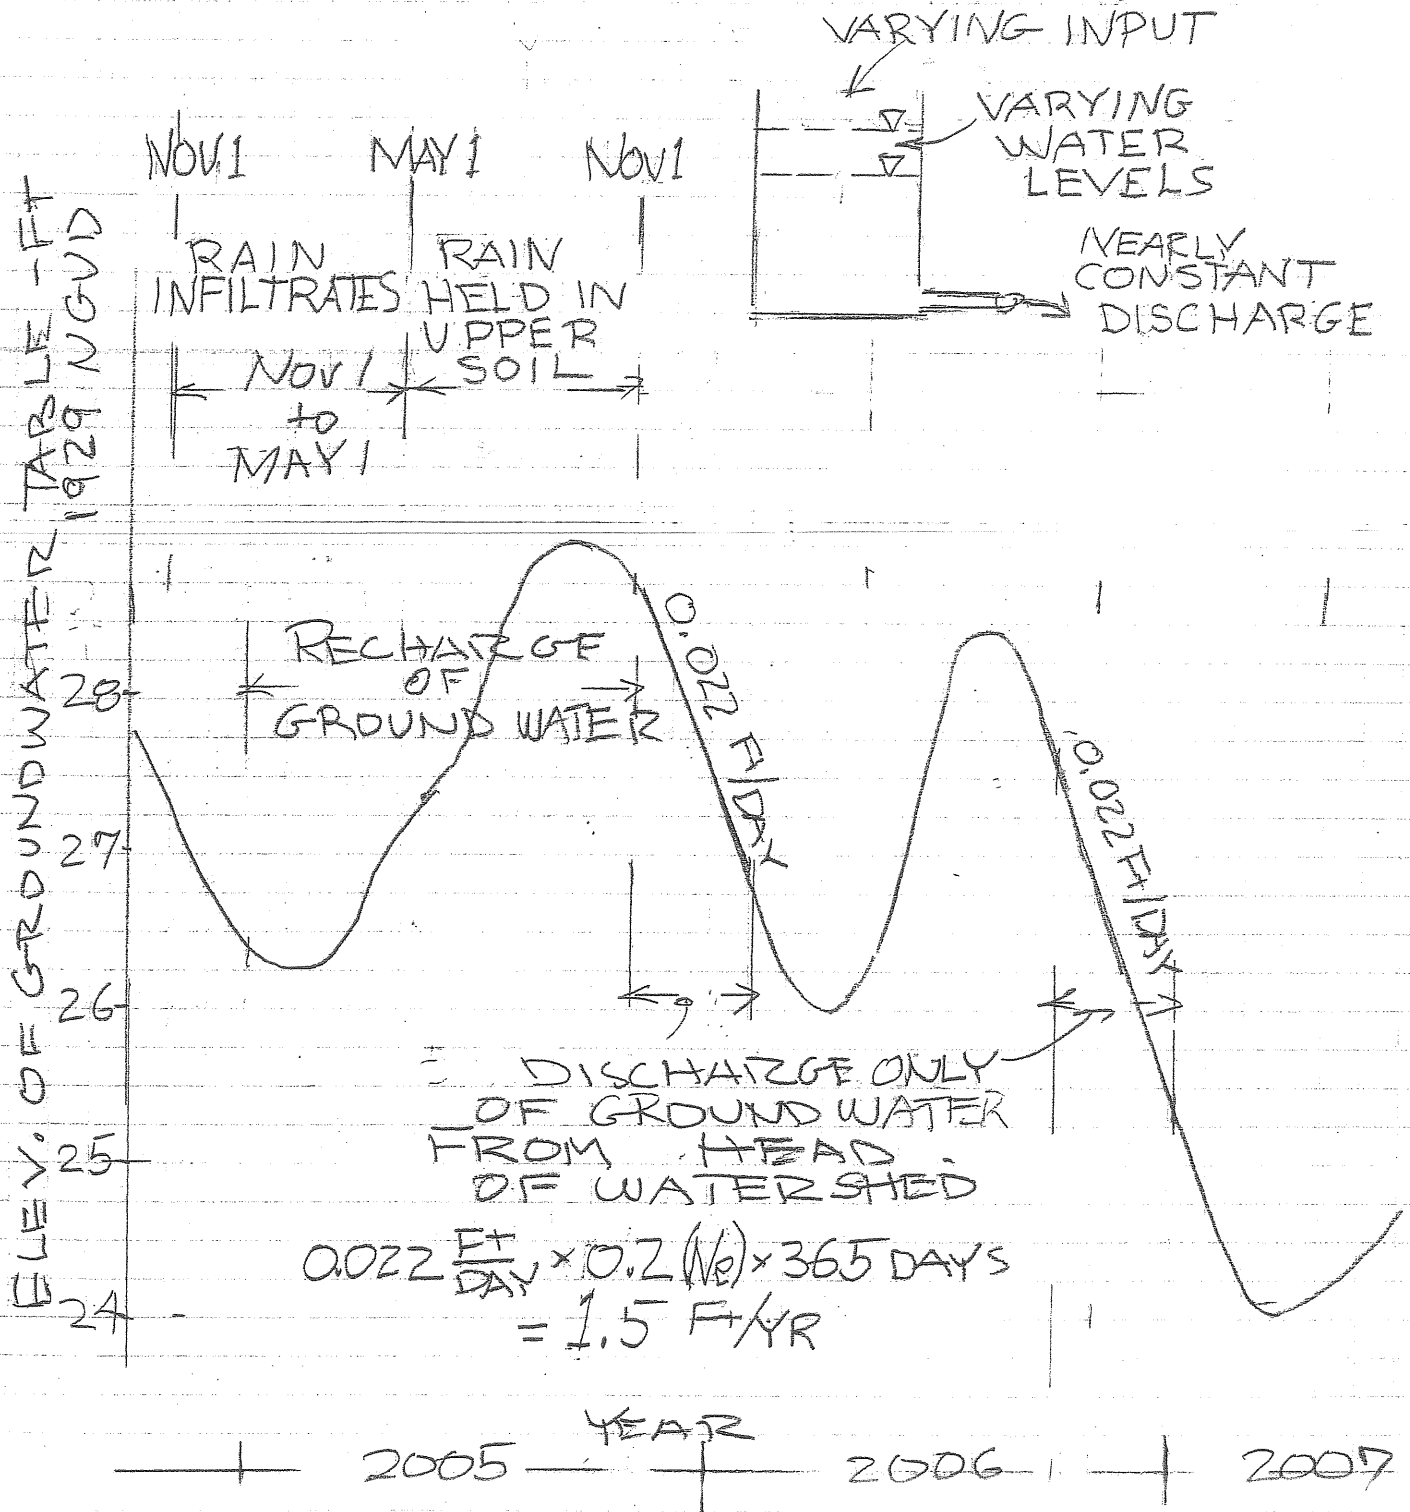 VARYING INPUT
VARYING
WATER
LEVELS
NEARLY
CONSTANT
DISCHARGE
NOV 1
MAY 1
NOV 1
RAIN
INFILTRATES
NOV 1
to
MAY 1
RAIN
HELD IN
UPPER
SOIL
ELEV. OF GROUNDWATER TABLE - FT
1929 NGVD
28
27
26
25
24
RECHARGE
OF
GROUND WATER
0.022 Ft/DAY
0.022 Ft/DAY
DISCHARGE ONLY
OF GROUND WATER
FROM HEAD
OF WATERSHED
0.022 Ft/DAY × 0.2 (Ne) × 365 DAYS
= 1.5 Ft/YR
YEAR
2005
2006
2007